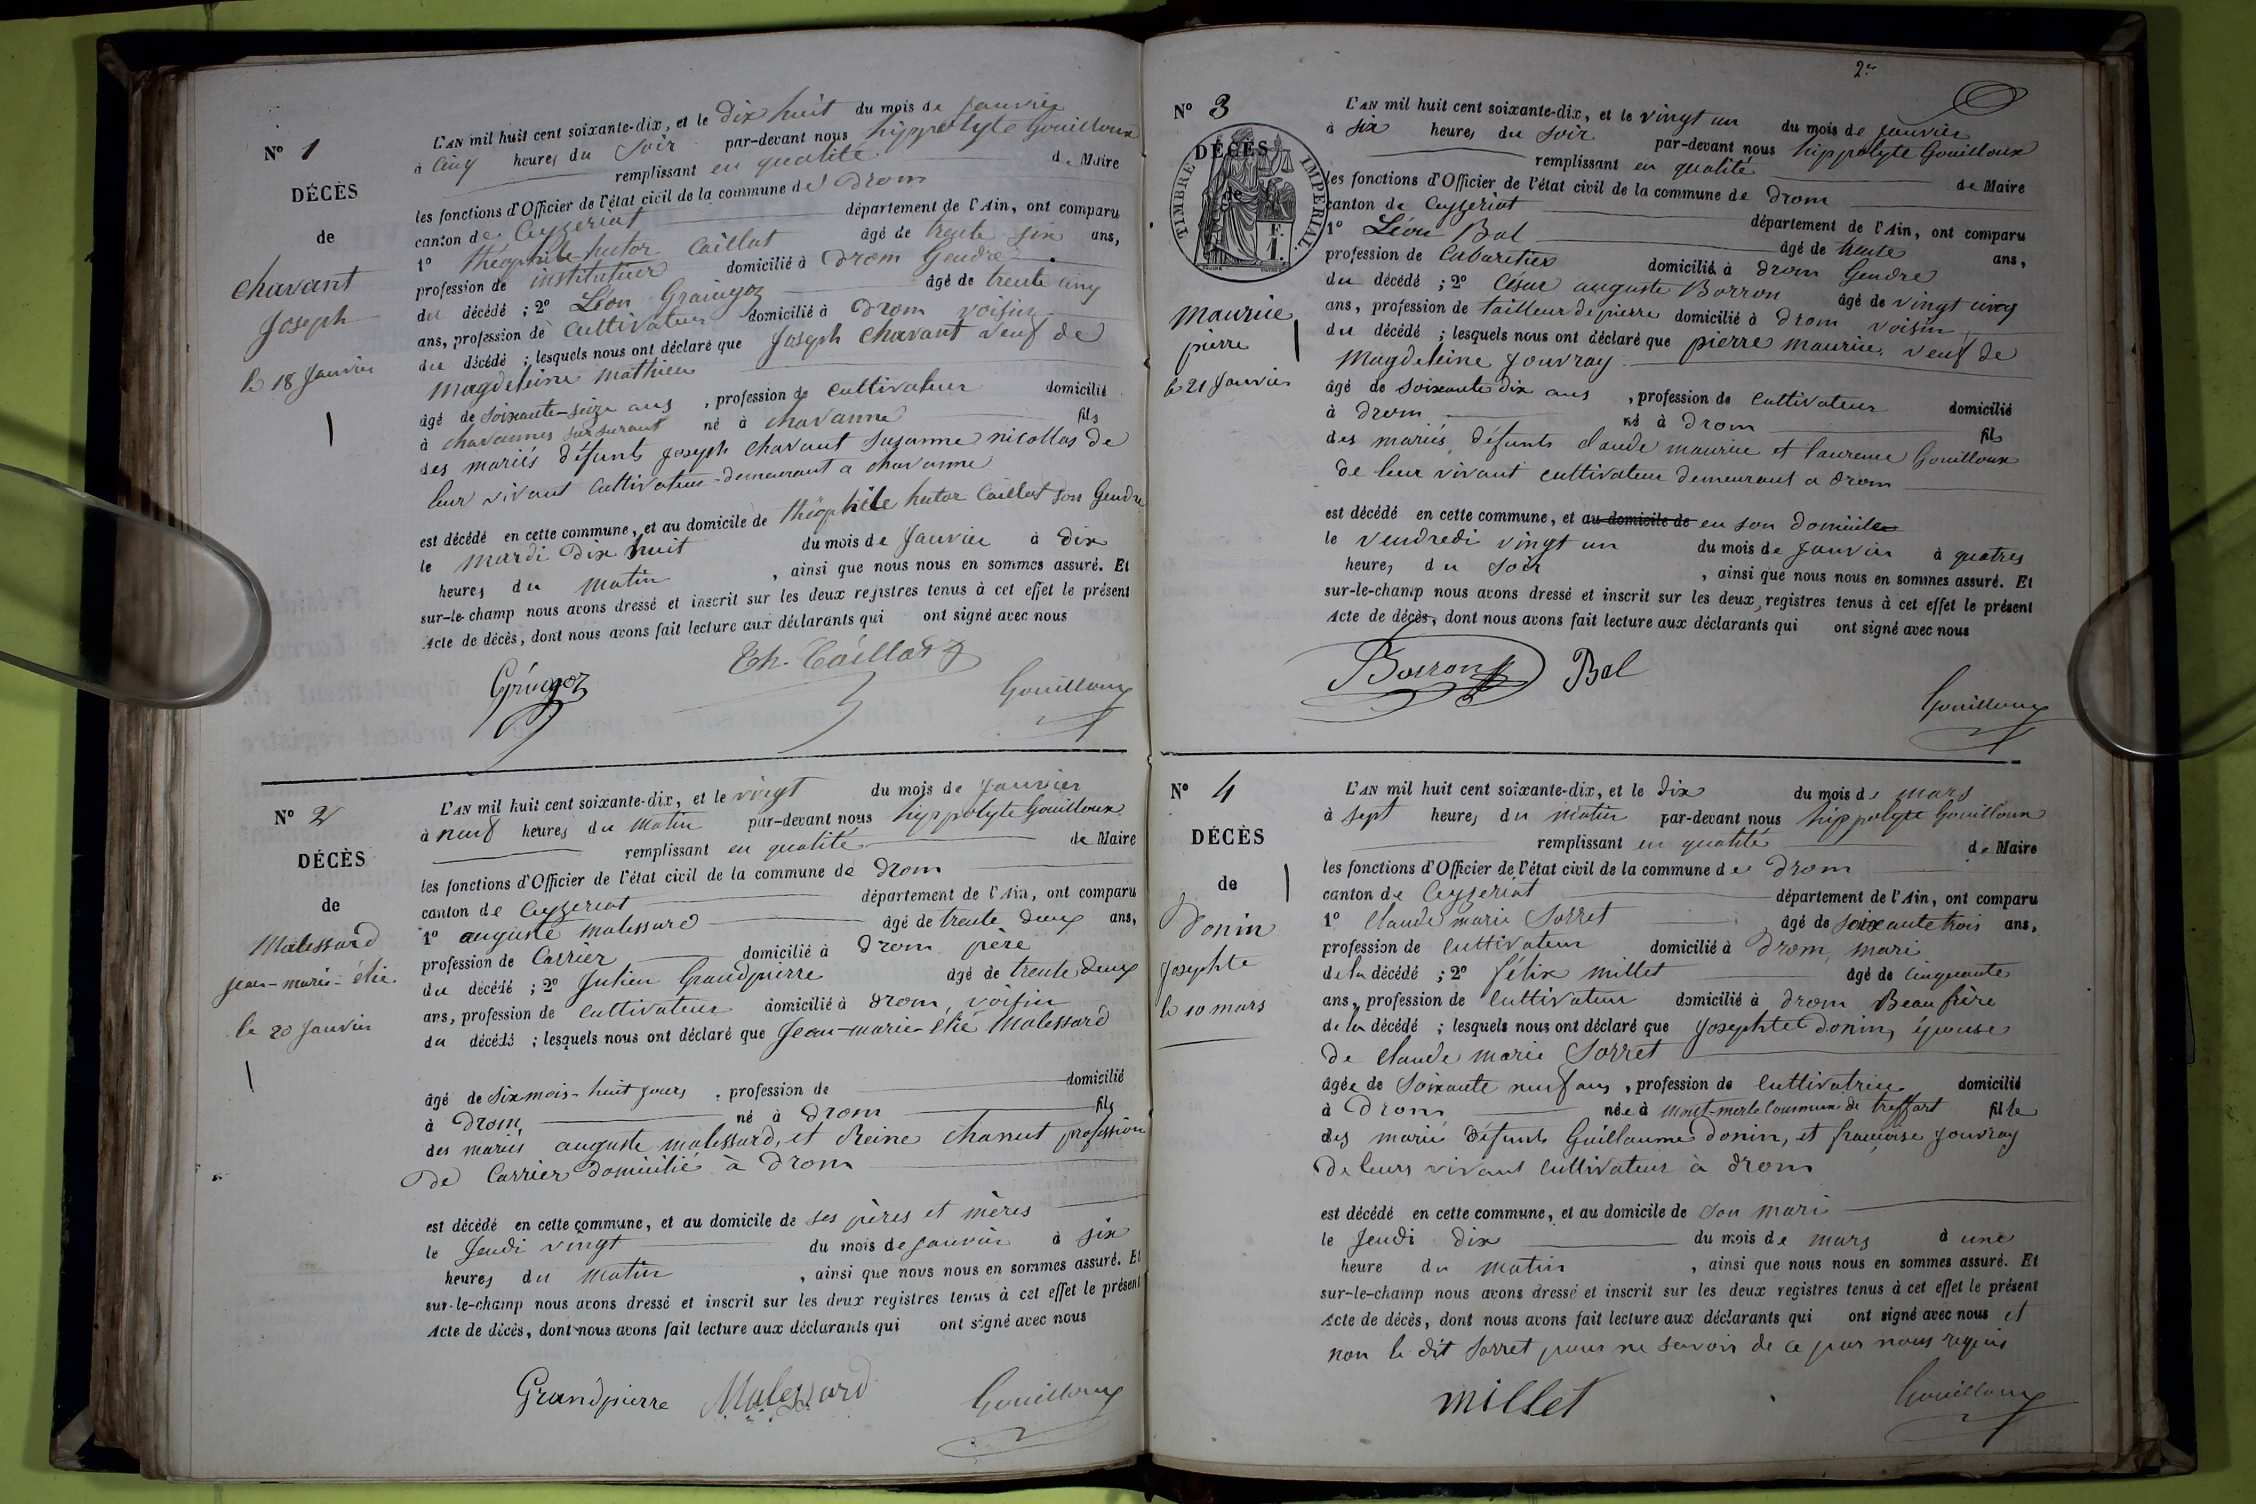 N° 1
DÉCÈS
de
chavant
Joseph
le 18 Janvier
L'AN mil huit cent soixante-dix, et le dix huit du mois de Janvier
à cinq heures du soir par-devant nous hippolyte Gouilloux
remplissant en qualité de Maire
les fonctions d'Officier de l'état civil de la commune de Drom
canton de Ceyzeriat département de l'Ain, ont comparu
1° théophile hutor Caillat âgé de trente six ans,
profession de instituteur domicilié à Drom Gendre
du décédé ; 2° Léon âgé de trente cinq
ans, profession de Cultivateur domicilié à Drom voisin
du décédé ; lesquels nous ont déclaré que Joseph Chavant veuf de
Magdeleine Mathieu
âgé de soixante-seize ans , profession de cultivateur domicilié
à chavannes sur surant né à chavanne fils
des mariés défunts Joseph Chavant Suzanne nicollas de
leur vivant Cultivateur demeurant a chavanne
est décédé en cette commune, et au domicile de théophile hutor Caillat son Gendre
le mardi dix huit du mois de Janvier à dix
heures du matin , ainsi que nous nous en sommes assuré. Et
sur-le-champ nous avons dressé et inscrit sur les deux registres tenus à cet effet le présent
Acte de décès, dont nous avons fait lecture aux déclarants qui ont signé avec nous
Th. Caillat
Gouilloux
N° 2
DÉCÈS
de
Malessard
jean-marie-élie
le 20 Janvier
L'AN mil huit cent soixante-dix, et le vingt du mois de Janvier
à neuf heures du Matin par-devant nous hippolyte Gouilloux
remplissant en qualité de Maire
les fonctions d'Officier de l'état civil de la commune de Drom
canton de Ceyzeriat département de l'Ain, ont comparu
1° auguste malessard âgé de trente deux ans,
profession de Carrier domicilié à Drom père
du décédé ; 2° Julien Grandpierre âgé de trente deux
ans, profession de Cultivateur domicilié à Drom, voisin
du décédé ; lesquels nous ont déclaré que Jean-marie-élie Malessard
âgé de six mois-huit jours , profession de domicilié
à Drom, né à Drom fils
des mariés auguste malessard, et Reine chanut profession
de Carrier domicilié à Drom
est décédé en cette commune, et au domicile de ses pères et mères
le Jeudi vingt du mois de Janvier à six
heures du Matin , ainsi que nous nous en sommes assuré. Et
sur-le-champ nous avons dressé et inscrit sur les deux registres tenus à cet effet le présent
Acte de décès, dont nous avons fait lecture aux déclarants qui ont signé avec nous
Grandpierre Malessard Gouilloux
2e
N° 3
DÉCÈS
de
TIMBRE IMPÉRIAL.
maurice
pierre
le 21 Janvier
L'AN mil huit cent soixante-dix, et le vingt un du mois de Janvier
à six heures du soir par-devant nous hippolyte Gouilloux
remplissant en qualité de Maire
les fonctions d'Officier de l'état civil de la commune de Drom
canton de Ceyzeriat département de l'Ain, ont comparu
1° Léon Bal âgé de trente ans,
profession de Cabaretier domicilié à Drom Gendre
du décédé ; 2° César auguste Borron âgé de vingt cinq
ans, profession de tailleur de pierre domicilié à Drom voisin
du décédé ; lesquels nous ont déclaré que pierre maurice, veuf de
Magdeleine Jouvray
âgé de soixante dix ans , profession de Cultivateur domicilié
à Drom né à Drom fils
des mariés, défunts claude maurice et laurence Gouilloux
de leur vivant cultivateur demeurant a Drom
est décédé en cette commune, et au domicile de en son domicile
le vendredi vingt un du mois de Janvier à quatres
heures du soir , ainsi que nous nous en sommes assuré. Et
sur-le-champ nous avons dressé et inscrit sur les deux registres tenus à cet effet le présent
Acte de décès, dont nous avons fait lecture aux déclarants qui ont signé avec nous
Borron Bal
Gouilloux
N° 4
DÉCÈS
de
Donin
Josephte
le 10 mars
L'AN mil huit cent soixante-dix, et le dix du mois de mars
à sept heures du matin par-devant nous hippolyte Gouilloux
remplissant en qualité de Maire
les fonctions d'Officier de l'état civil de la commune de Drom
canton de Ceyzeriat département de l'Ain, ont comparu
1° Claude marie Sorret âgé de soixante trois ans,
profession de cultivateur domicilié à Drom, mari
de la décédé ; 2° félix millet âgé de cinquante
ans, profession de Cultivateur domicilié à Drom Beau frère
de la décédé ; lesquels nous ont déclaré que Josephte Donin, épouse
de Claude marie Sorret
âgée de soixante neuf ans, profession de Cultivatrice domicilié
à Drom née à mont-merle Commune de treffort fille
des mariés défunts Guillaume Donin, et françoise Jouvray
De leurs vivant Cultivateur à Drom
est décédé en cette commune, et au domicile de son mari
le Jeudi dix du mois de mars à une
heure du matin , ainsi que nous nous en sommes assuré. Et
sur-le-champ nous avons dressé et inscrit sur les deux registres tenus à cet effet le présent
Acte de décès, dont nous avons fait lecture aux déclarants qui ont signé avec nous et
non le dit Sorret pour ne savoir de ce par nous requis
millet Gouilloux